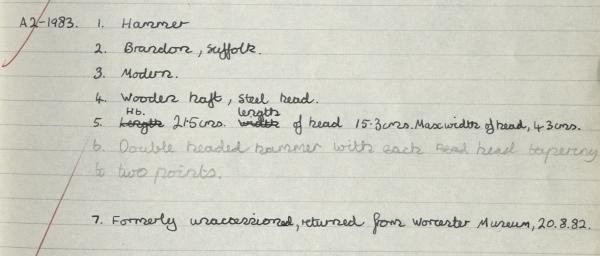 A2-1983. 1. Hammer
2. Brandon, Suffolk.
3. Modern.
4. Wooden haft, Steel head.
Ht. length
5. Length 21.5cms. width of head 15.3cms. Max width of head, 4.3cms.
6. Double headed hammer with each head tapering
to two points.
7. Formerly unaccessioned, returned from Worcester Museum, 20.8.82.